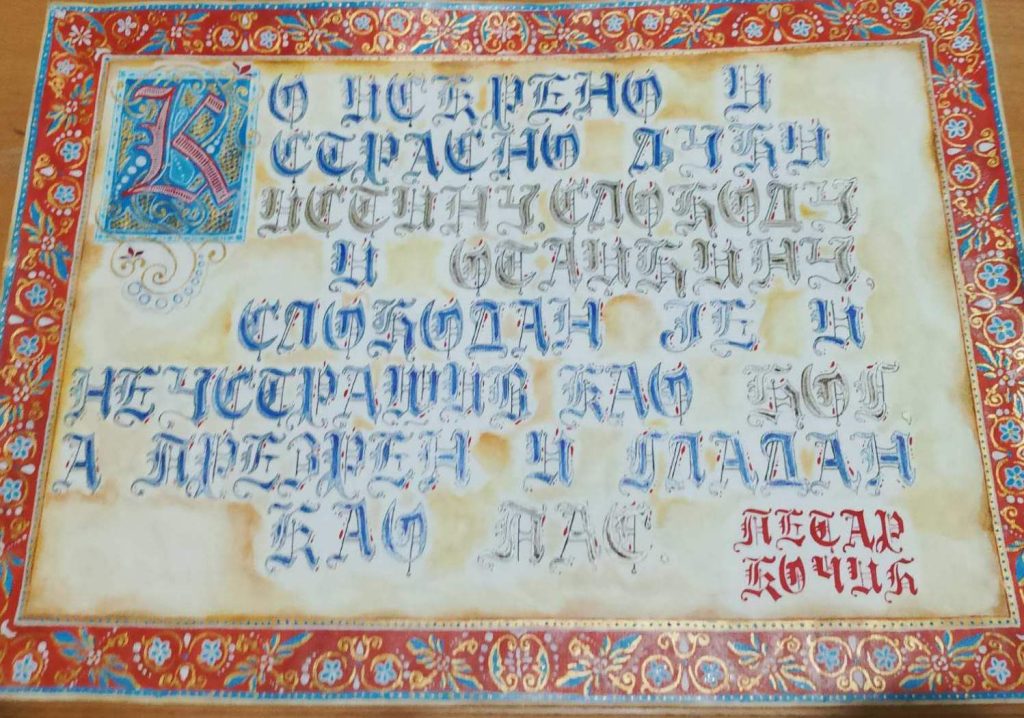 КО ИСКРЕНО И
СТРАСНО ЉУБИ
ИСТИНУ, СЛОБОДУ
И ОТАЏБИНУ,
СЛОБОДАН ЈЕ И
НЕУСТРАШИВ КАО БОГ,
А ПРЕЗРЕН И ГЛАДАН
КАО ПАС.
ПЕТАР
КОЧИЋ